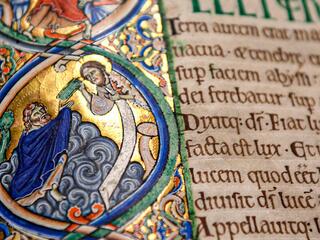 Terra autem erat ina
uacua · & tenebre
sup faciem abyssi ·
dei ferebatur sup
Dixitq; ds · Fiat lu
facta est lux · Et ui
lucem quod eēt
diuisit ds lucē
Appellauitq; l